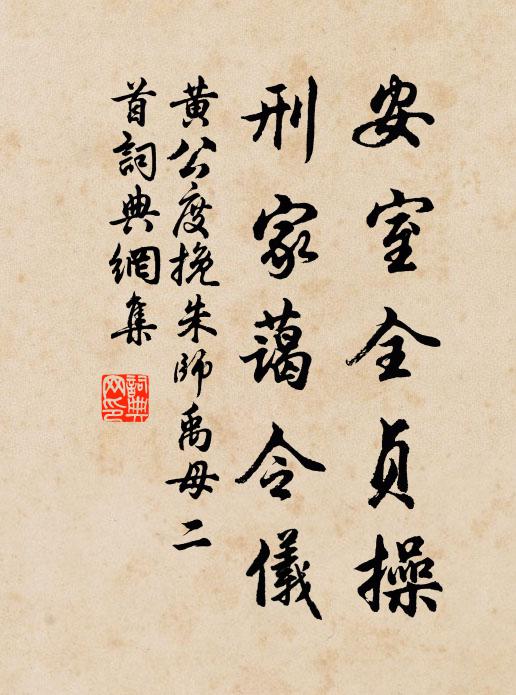 安室全貞操
刑家藹令儀
黃公度挽朱師禹母二
首詞典網集
詞典網印